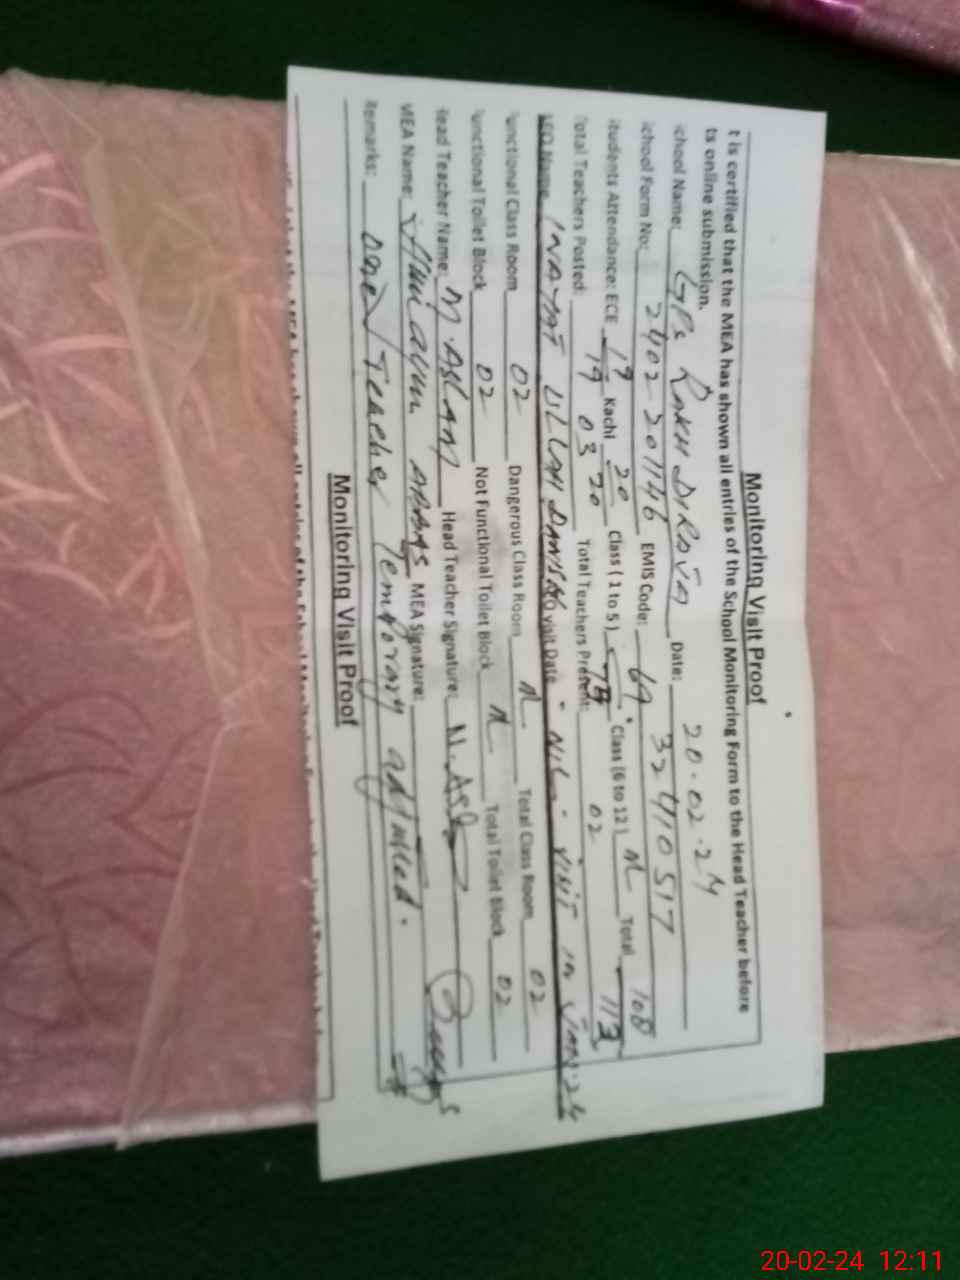 Monitoring Visit Proof
t is certified that the MEA has shown all entries of the School Monitoring Form to the Head Teacher before
ts online submission.
chool Name: GPS RAKH DIRSVA Date: 20.02.24
chool Form No: 2402-201146 EMIS Code: 32410517
tudents Attendance: ECE 19 Kachi 20 Class ( 1 to 5 ) Class (6 to 12) Total 108
19 20 113
Total Teachers Posted: 03 Total Teachers Present: 02
AEO Name INAYAT ULLAH AEO Visit Date - NIL - VISIT in JAN.24
unctional Class Room 02 Dangerous Class Room Total Class Room 02
unctional Toilet Block 02 Not Functional Toilet Block Total Toilet Block 02
Head Teacher Name: M. ASLAM Head Teacher Signature:
MEA Name: ABBAS MEA Signature:
Remarks: one Teacher Temporary adjusted.
Monitoring Visit Proof
20-02-24 12:11